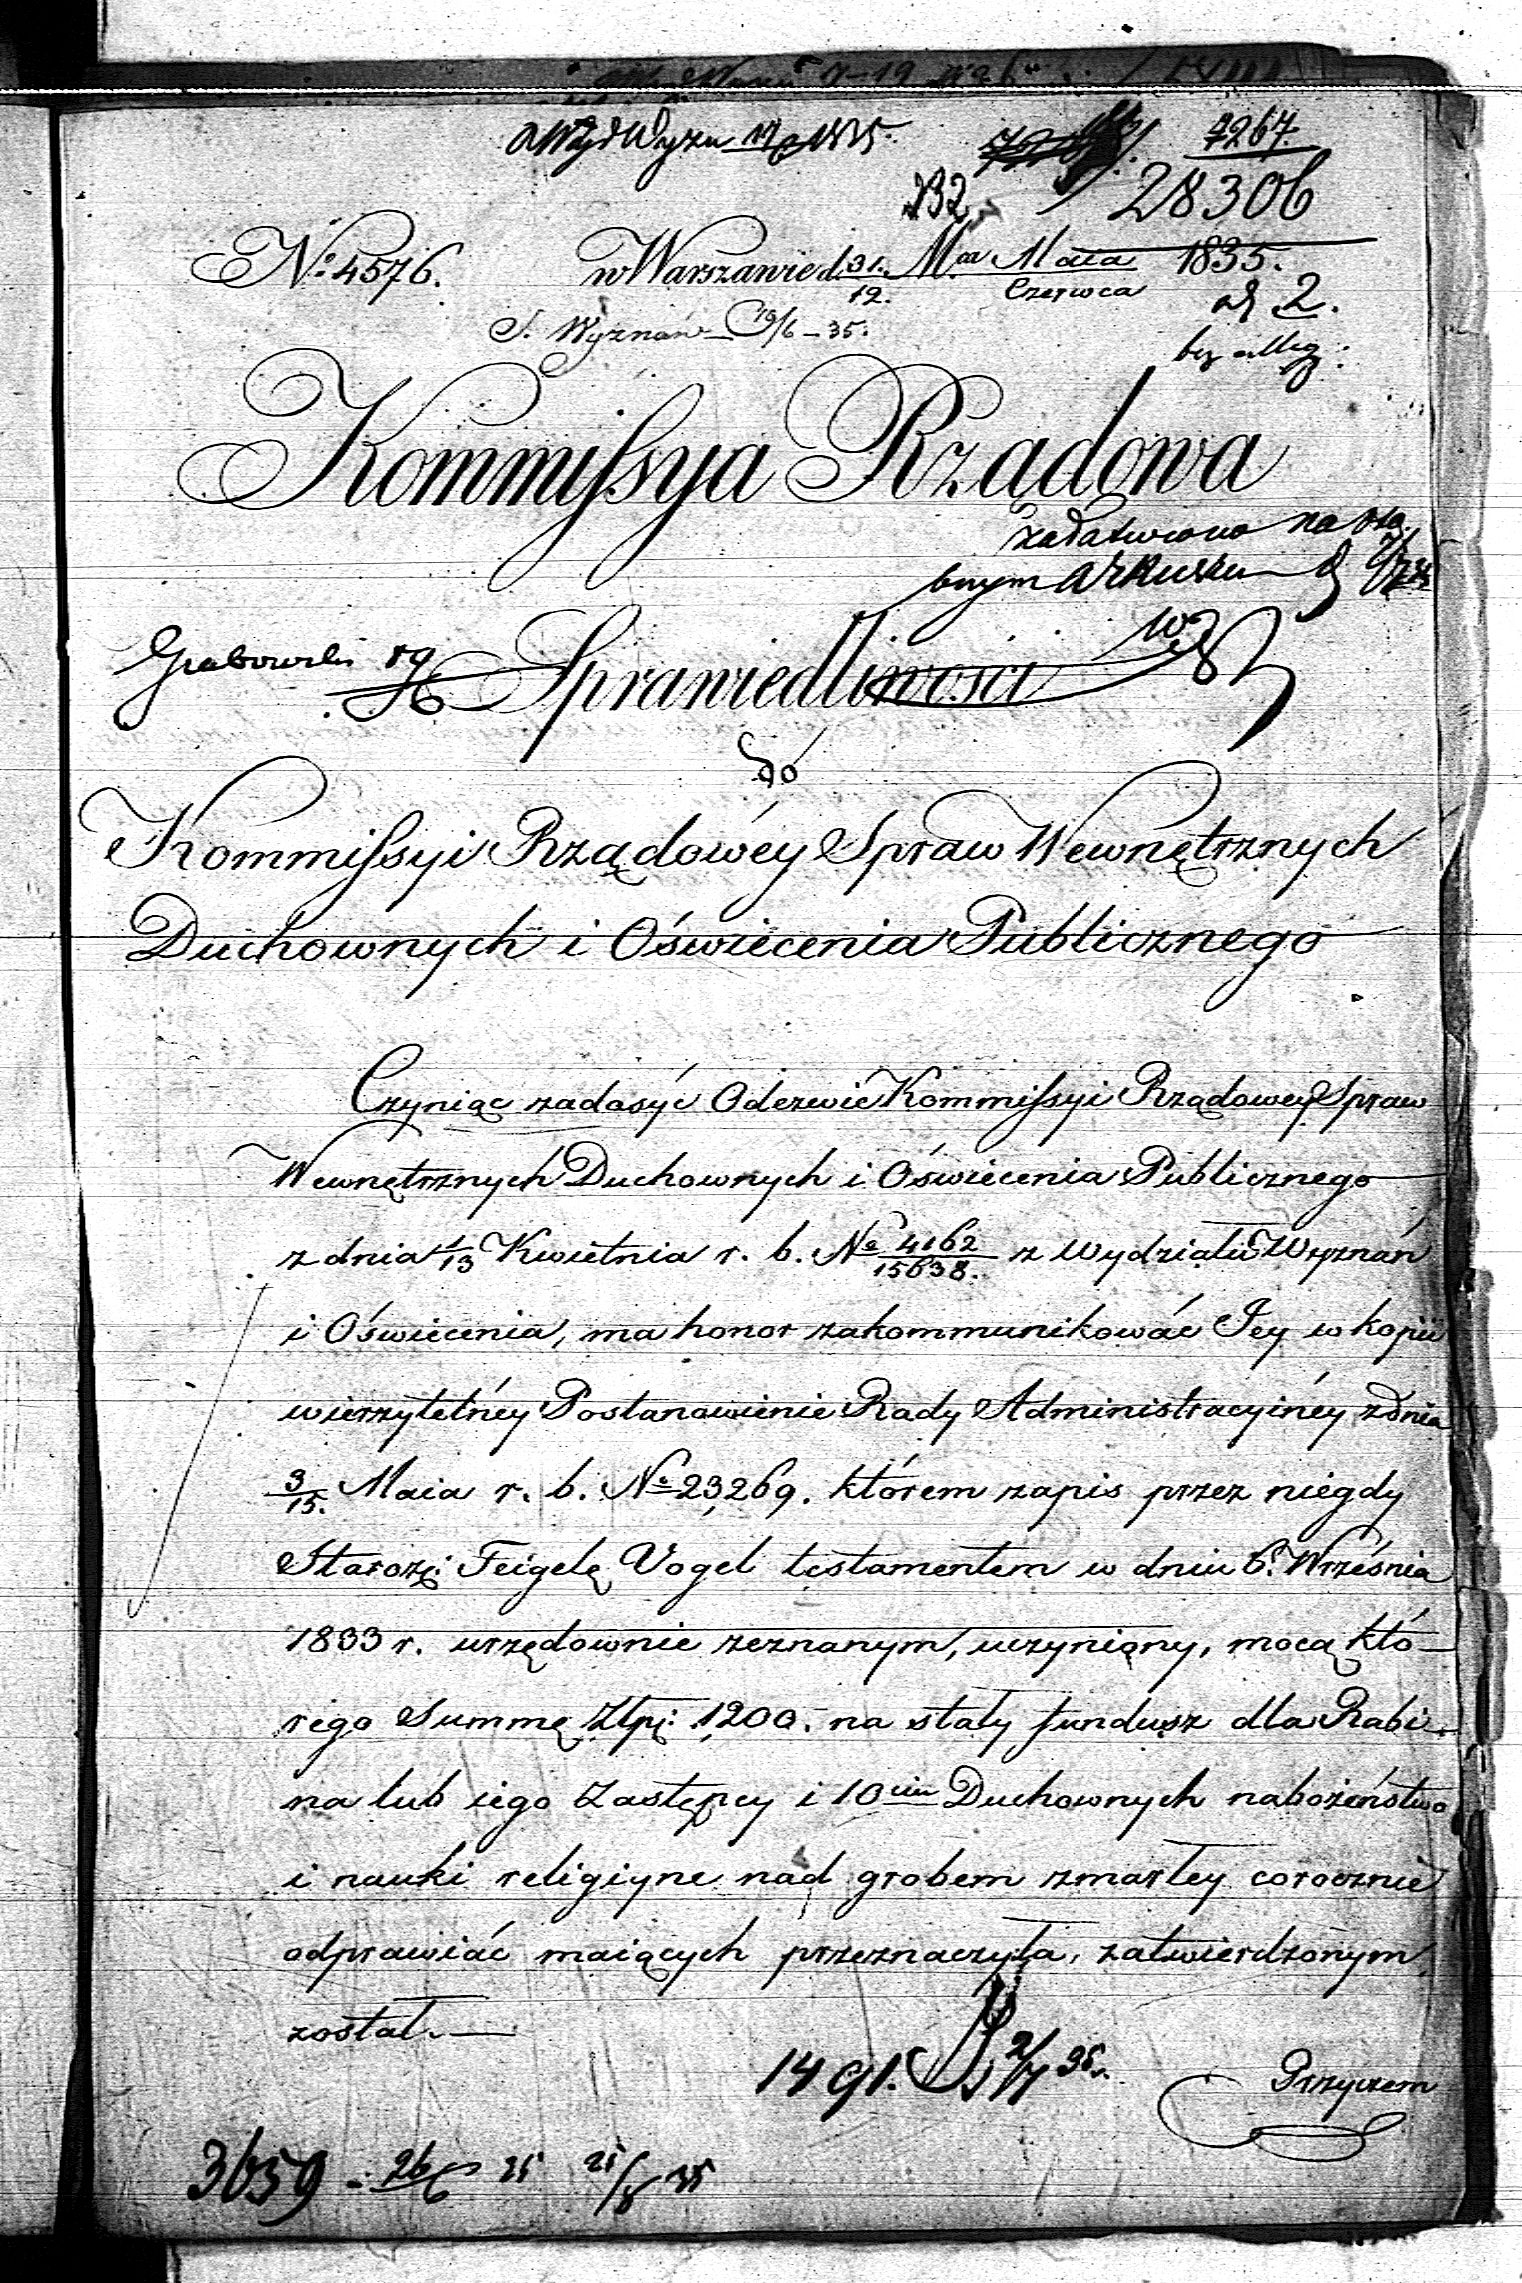 7267.
232
28306
No 4576. w Warszawie d. 31./12. Mca Maia/Czerwca 1835.
ad 2.
S. Wyznań 19/6 - 35.
bez alleg:
Kommissya Rządowa
załatwiono na oso
bnym arkuszu
Grabowski 19/6 Sprawiedliwości
do
Kommissyi Rządowéy Spraw Wewnętrznych
Duchownych i Oświecenia Publicznego
Czyniąc zadosyć Odezwie Kommissyi Rządowey Spraw
Wewnętrznych Duchownych i Oświecenia Publicznego
z dnia 1/13 Kwietnia r. b. No 4162/15638. z Wydziału Wyznań
i Oświecenia, ma honor zakommunikować Jey w kopii
wierzytelnéy Postanowienie Rady Administracyinéy z dnia
3/15. Maia r. b. No 23,269. którem zapis przez niegdy
Starozę: Feigelę Vogel testamentem w dniu 6. Września
1833 r. urzędownie zeznanym, uczyniony, mocą któ-
rego Summę Złp: 1,200. na stały fundusz dla Rabi-
na lub iego Zastępcy i 10ciu Duchownych nabożeństwo
i nauki religiyne nad grobem zmarłey corocznie
odprawiać maiących przeznaczyła, zatwierdzonym
został.—
1491. 2/7 35.
Przyczem
3659 - 26/6 35 25/8 35